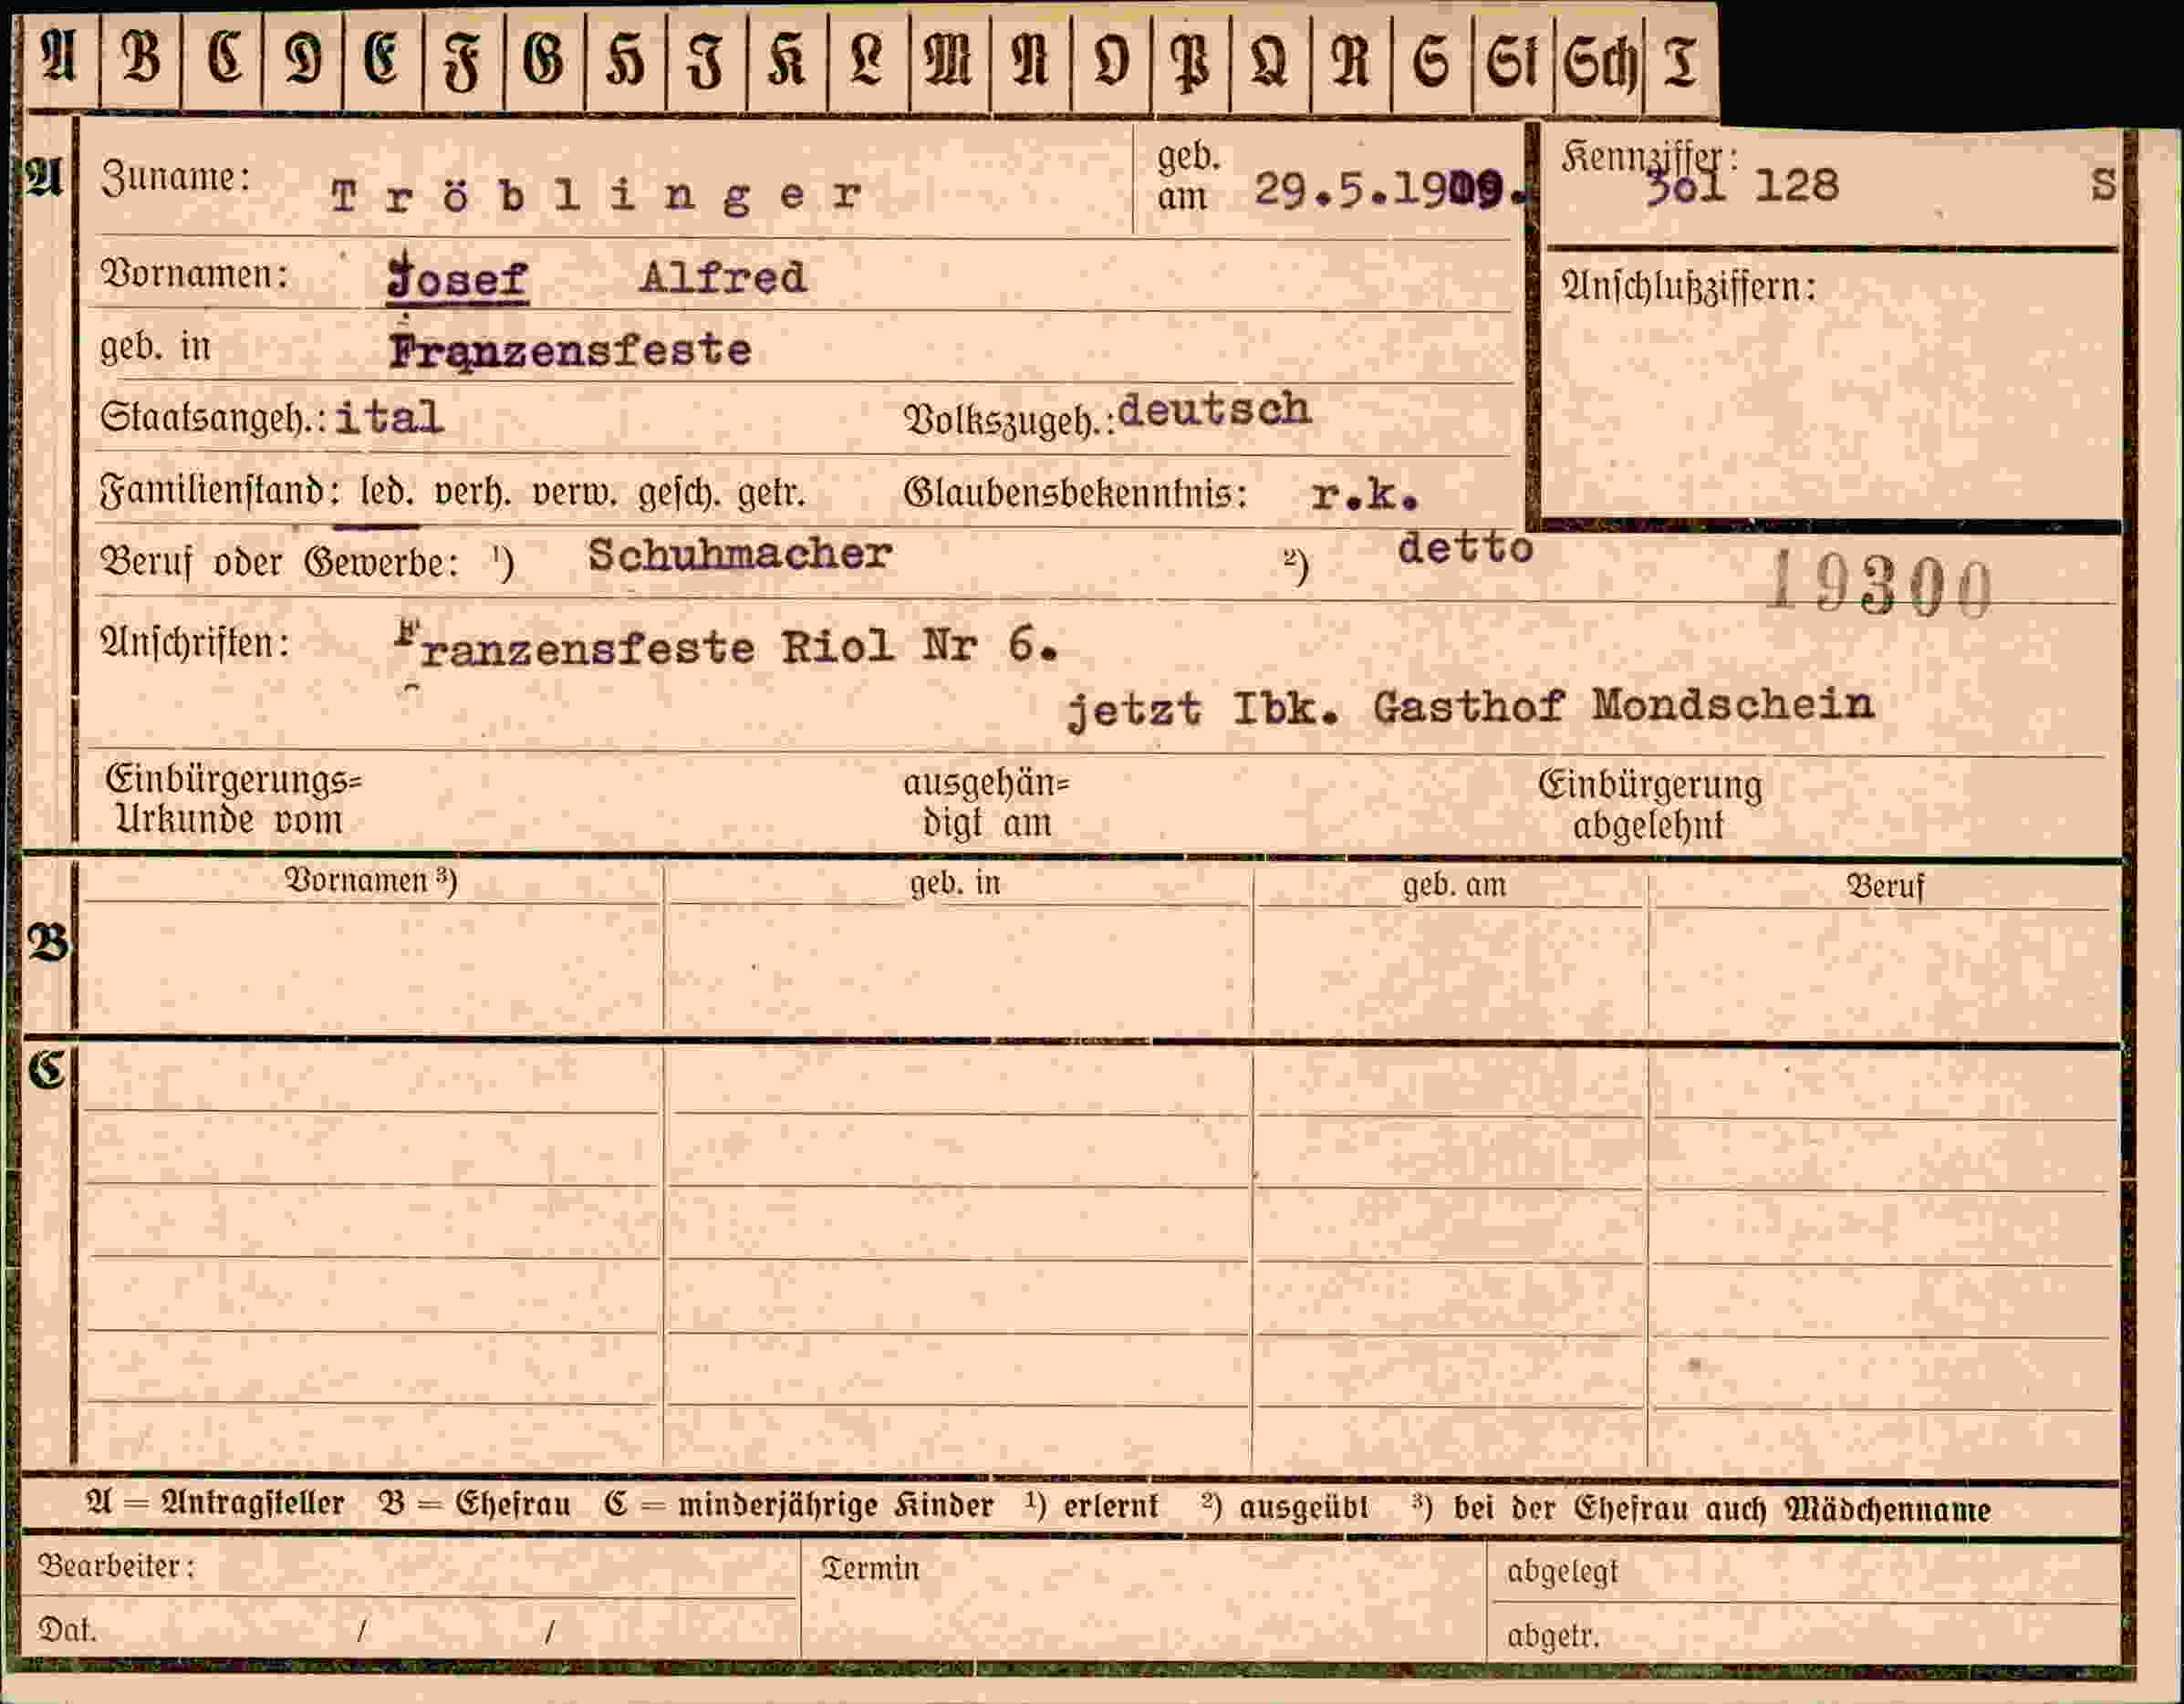 A B C D E F G H I K L M N O P Q R S St Sch T
A Zuname: Tröblinger geb. am 29.5.1909. Kennziffer: 3o1 128 S
Vornamen: Josef Alfred Anschlußziffern:
geb. in Franzensfeste
Staatsangeh.: ital Volkszugeh.: deutsch
Familienstand: led. verh. verw. gesch. getr. Glaubensbekenntnis: r.k.
Beruf oder Gewerbe: ¹) Schuhmacher ²) detto 19300
Anschriften: Franzensfeste Riol Nr 6.
jetzt Ibk. Gasthof Mondschein
Einbürgerungs= ausgehän= Einbürgerung
Urkunde vom digt am abgelehnt
Vornamen ³) geb. in geb. am Beruf
B
C
A = Antragsteller B = Ehefrau C = minderjährige Kinder ¹) erlernt ²) ausgeübt ³) bei der Ehefrau auch Mädchenname
Bearbeiter: Termin abgelegt
Dat. / / abgetr.